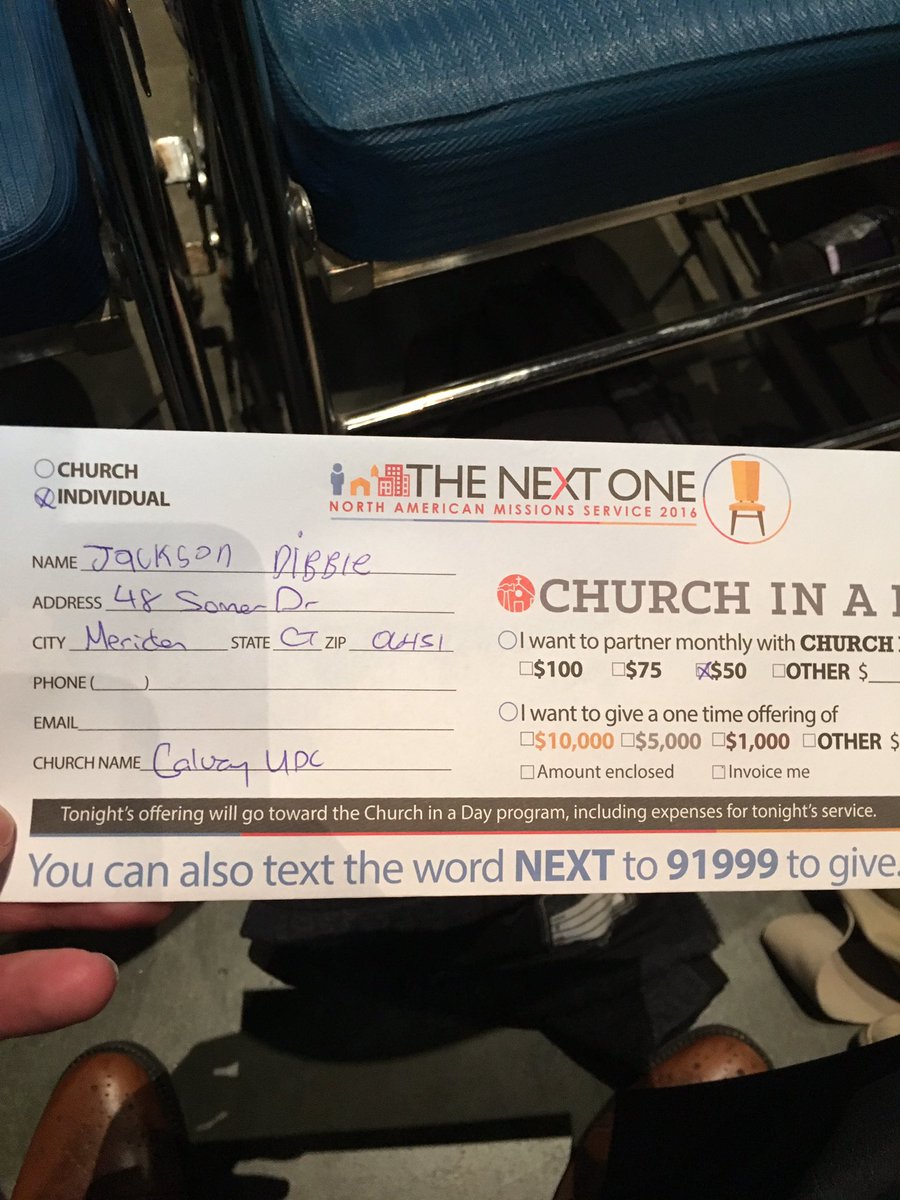 CHURCH
INDIVIDUAL
THE NEXT ONE
NORTH AMERICAN MISSIONS SERVICE 2016
NAME Jackson Dibble
ADDRESS 48 Somer Dr
CITY Meriden STATE CT ZIP 06451
PHONE ( )
EMAIL
CHURCH NAME Calvary UPC
CHURCH IN A
I want to partner monthly with CHURCH
$100 $75 $50 OTHER $
I want to give a one time offering of
$10,000 $5,000 $1,000 OTHER $
Amount enclosed Invoice me
Tonight's offering will go toward the Church in a Day program, including expenses for tonight's service.
You can also text the word NEXT to 91999 to give.